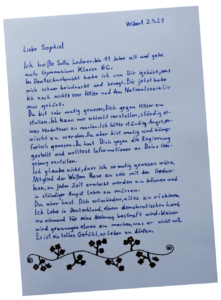 Liebe Sophie!
Ich heiße Sofia Lederer, bin 11 Jahre alt und gehe
aufs Gymnasium Klasse 6C.
Im Deutschunterricht habe ich von Dir gehört, was
mich schwer beeindruckt und bewegt. Bis jetzt habe
ich noch nichts von Hitler und den Nationalsozialis-
mus gehört.
Du bist sehr mutig gewesen, Dich gegen Hitler zu
stellen. Ich kann mir schlecht vorstellen, ständig et-
was Verbotenes zu machen. Ich hätte ständig Angst,
erwischt zu werden. Du aber bist mutig und
furchtlos gewesen. Du hast Dich gegen die Regierung
gestellt und wolltest Informationen an Deine Um-
gebung verteilen.
Ich glaube nicht, dass ich so mutig gewesen wäre,
Mitglied der Weißen Rose zu sein mit dem Gedan-
ken, zu jeder Zeit erwischt werden zu können und
in ständiger Angst leben zu müssen.
Du aber hast Dich entschieden, alles zu riskieren.
Ich lebe in Deutschland, einem demokratischen Land,
wo niemand für seine Meinung bestraft wird. Keiner
wird gezwungen etwas zu machen, was er nicht will.
Es ist ein tolles Gefühl, so leben zu dürfen.